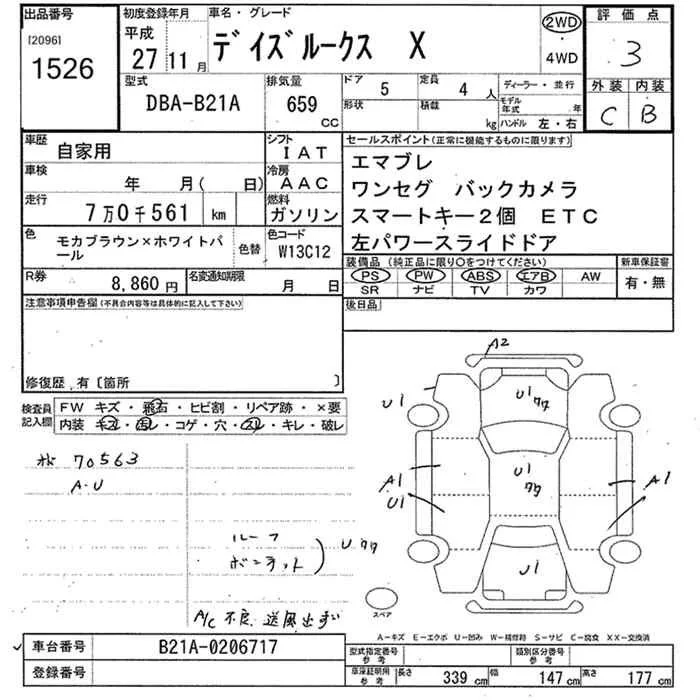 出品番号
[2096]
1526
初度登録年月
平成
27 11 月
車名・グレード
デイズルークス X
2WD
4WD
評価点
3
外装 内装
C B
型式
DBA-B21A
排気量
659
CC
ドア
5
定員
4 人
形状
積載
kg
ディーラー・並行
モデル年式 年
ハンドル 左・右
車歴
自家用
シフト
IAT
車検
年 月( 日)
冷房
AAC
走行
7万0千561 km
燃料
ガソリン
色
モカブラウン×ホワイトパール
色替
色コード
W13C12
R券
8,860円
名変通知期限
月 日
セールスポイント(正常に機能するものに限ります)
エマブレ
ワンセグ バックカメラ
スマートキー2個 ETC
左パワースライドドア
装備品(純正品に限り○をつけてください)
PS PW ABS エアB AW
SR ナビ TV カワ
新車保証書
有・無
後日品
注意事項申告欄(不具合内容等は具体的に記入して下さい)
修復歴 有〔箇所 〕
検査員記入欄
FW キズ・飛石・ヒビ割・リペア跡・×要
内装 キズ・汚レ・コゲ・穴・スレ・キレ・破レ
70563
A-U
ルーフ
ボンネット
Uクク
A/C 不良 送風出ず
A2
U1
U1
クク
U1
クク
A1
U1
A1
U1
スペア
A-キズ E-エクボ U-凹み W-補修跡 S-サビ C-腐食 XX-交換済
車台番号
B21A-0206717
登録番号
型式指定番号
参考
類別区分番号
参考
車庫証明用
参考
長さ 339 cm
幅 147 cm
高さ 177 cm